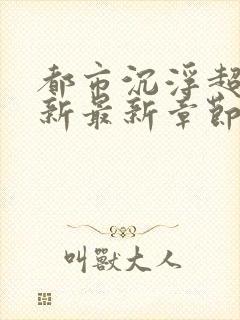 都市沉浮超
新最新章節
叫獸大人